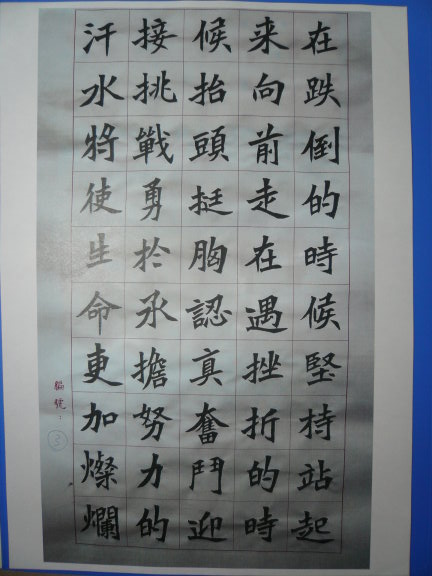 在跌倒的時候堅持站起
来向前走在遇挫折的時
候抬頭挺胸認真奮鬥迎
接挑戰勇於承擔努力的
汗水將使生命更加燦爛
編號：3